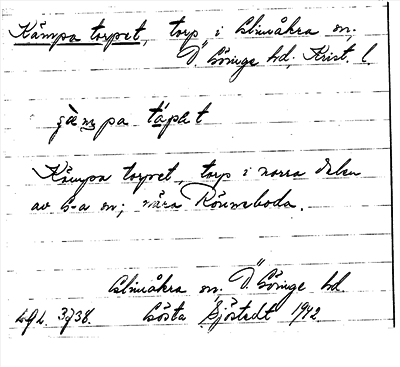 Kämpa torpet, torp i Glimåkra sn.
Ö. Göinge hd. Krist. l.
Kämpa torpet, torp i norra delen
av G-a sn; nära Rönneboda.
Glimåkra sn. Ö. Göinge hd
L.A.L. 3738. Gösta Sjöstedt 1942